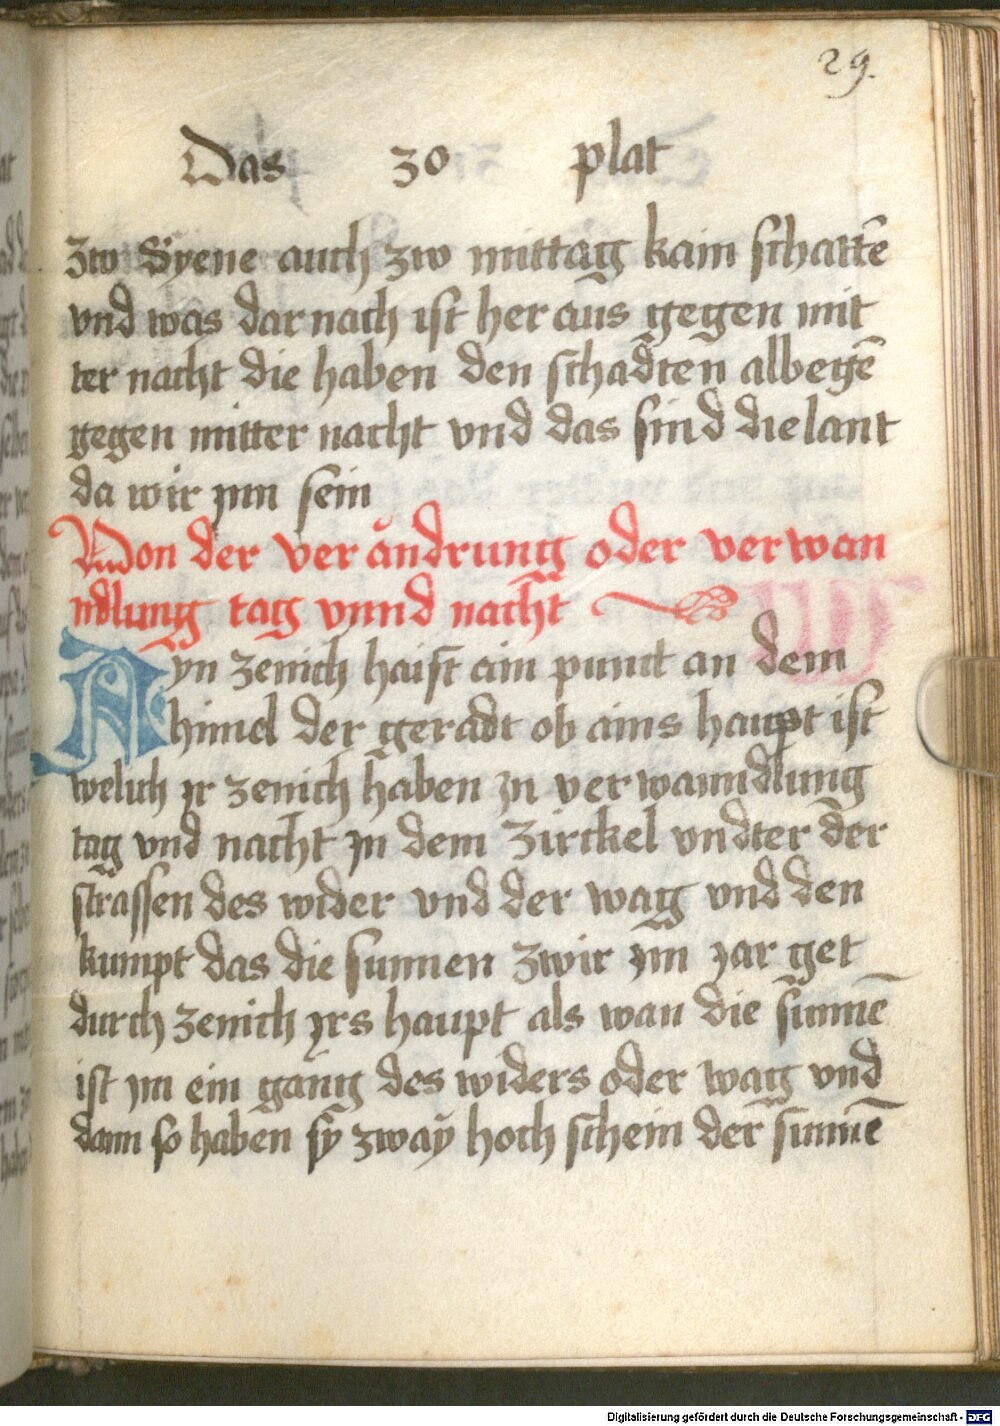 29.
Das 30 plat
zw Syene auch zw mittag kain schattē
vnd was dar nach ist her aus gegen mit
ter nacht die haben den schadten albegē
gegen mitter nacht vnd das sind die lant
da wir ynn sein
Von der ver ändrung oder ver wan
ndlung tag vnnd nacht
Ayn zenich haist ain punct an dem
himel der geradt ob ains haupt ist
welich yr zenich haben yn ver wanndlung
tag vnd nacht yn dem zirckel vndter der
strassen des wider vnd der wag vnd den
kumpt das die sunnen zwir ym yar get
durch zenich yrs haupt als wan die sunnē
ist ym ein gang des widers oder wag vnd
dann so haben sy zway hoch schein der sunnē
Digitalisierung gefördert durch die Deutsche Forschungsgemeinschaft - DFG